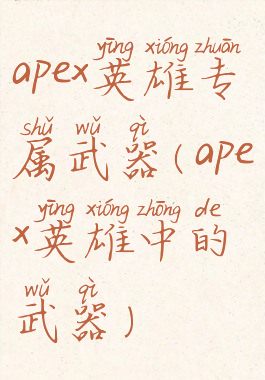 yīng xióng zhuān
apex英雄专
shǔ wǔ qì
属武器(ape
yīng xióng zhōng de
x英雄中的
wǔ qì
武器)